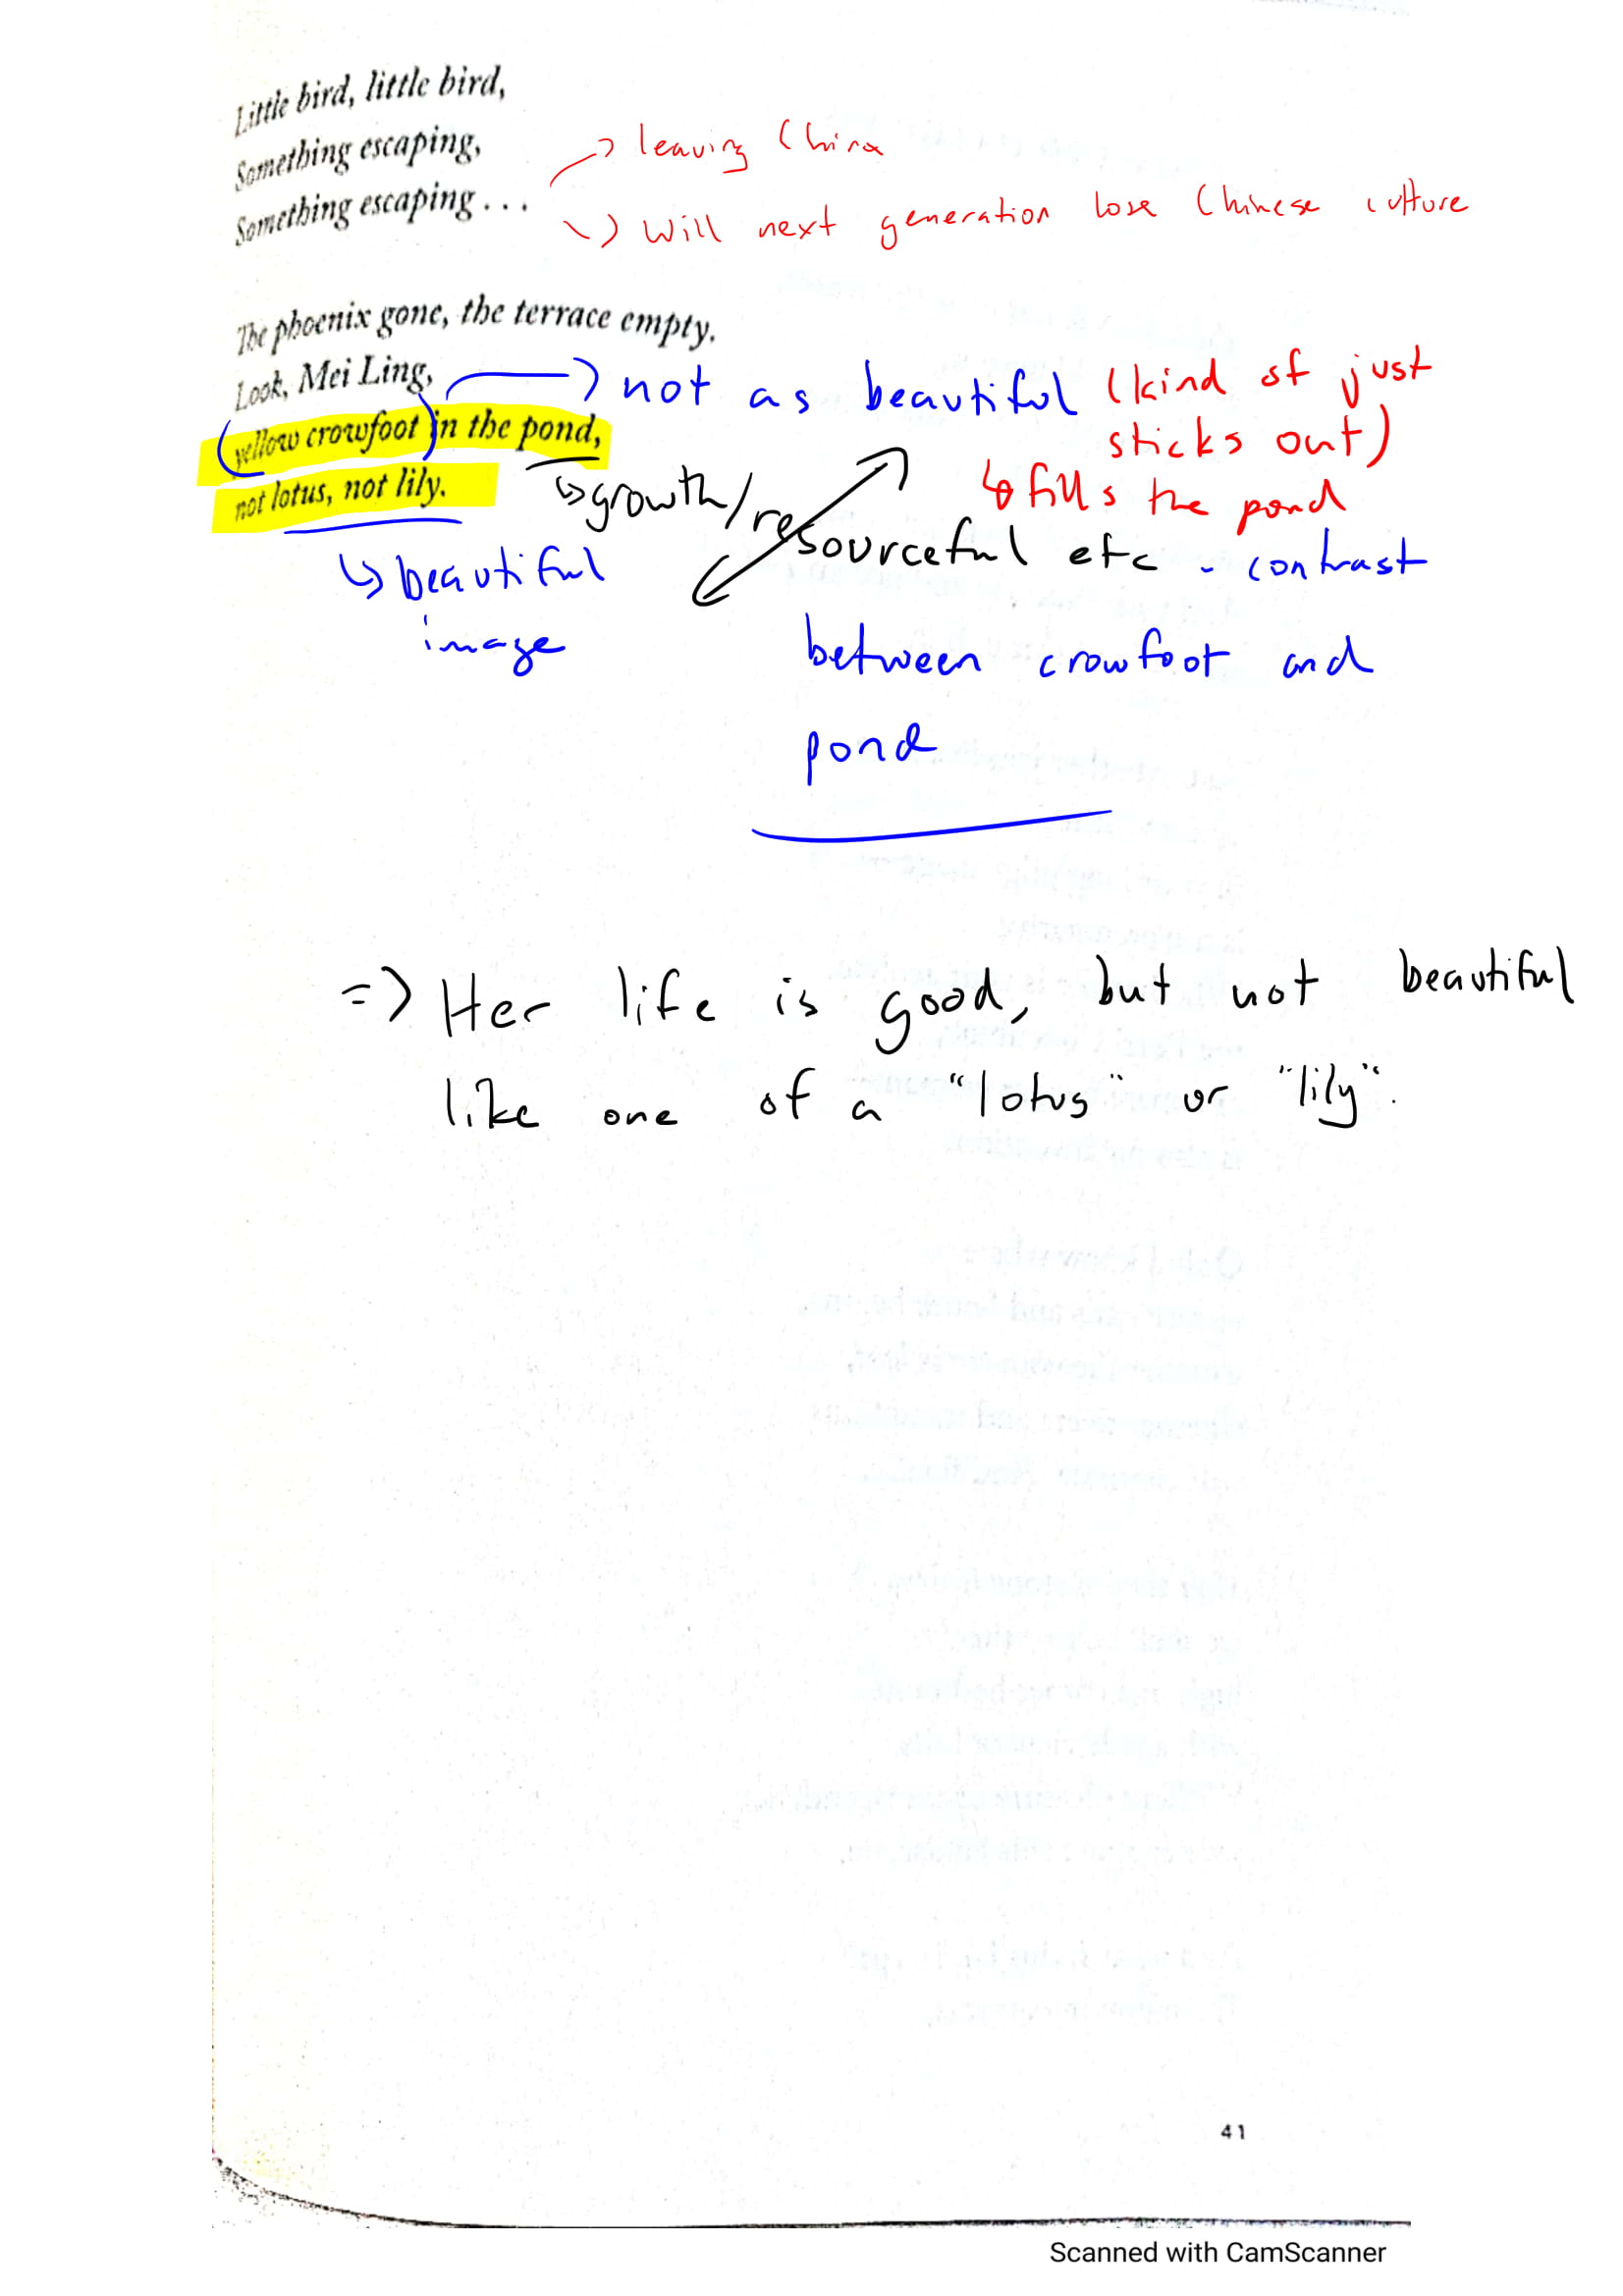 Little bird, little bird,
Something escaping,
Something escaping . . .
leaving China
will next generation lose Chinese culture
The phoenix gone, the terrace empty.
Look, Mei Ling,
yellow crowfoot in the pond,
not lotus, not lily.
not as beautiful (kind of just
sticks out)
fills the pond
growth/resourceful etc - contrast
between crowfoot and
pond
beautiful
image
=> Her life is good, but not beautiful
like one of a "lotus" or "lily".
41
Scanned with CamScanner